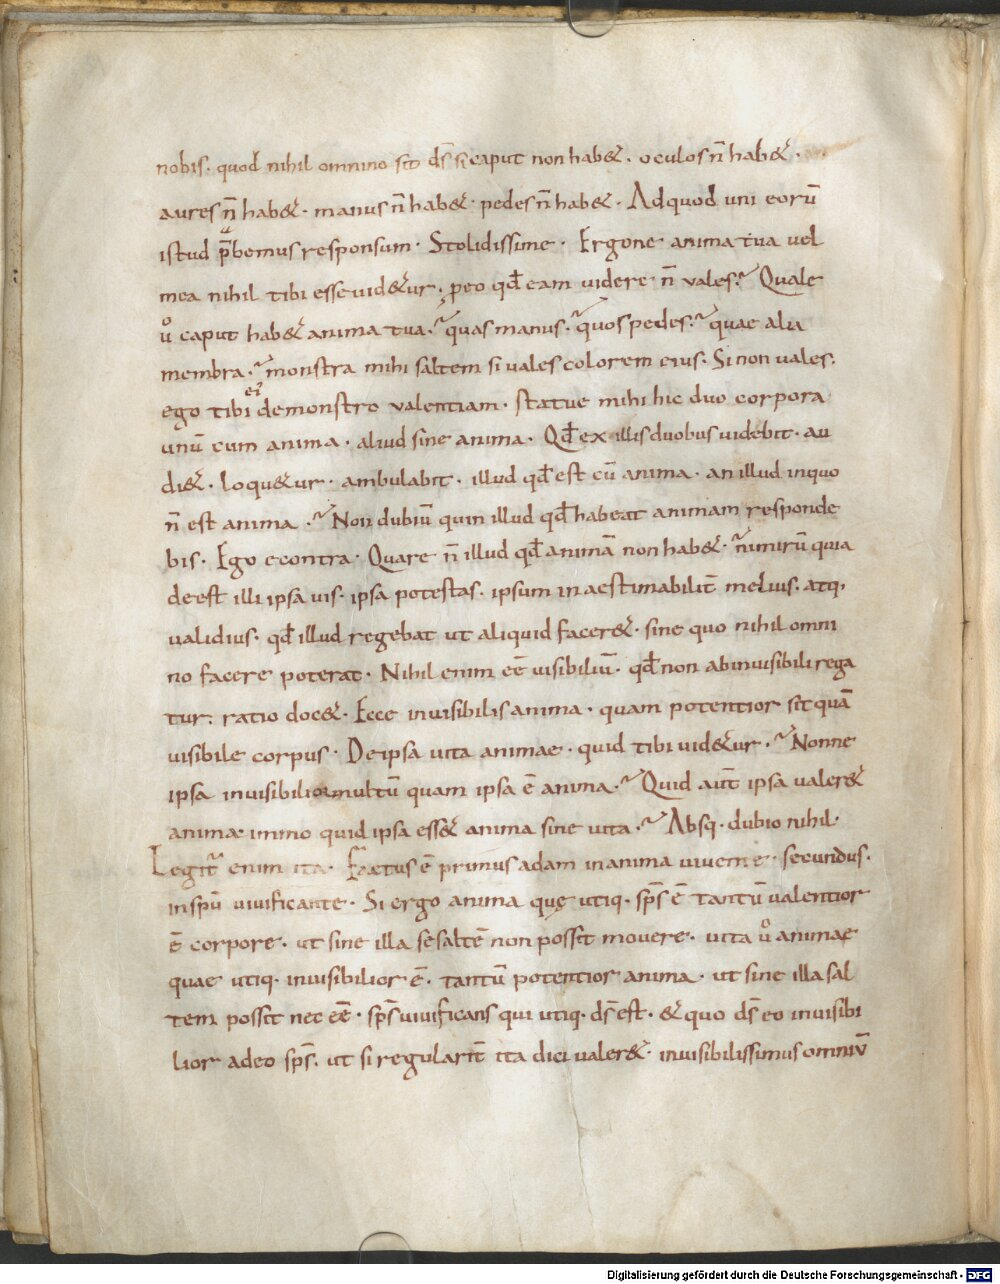 nobis· quod nihil omnino sit ds̄ si caput non hab&· oculos n̄ hab&·
aures n̄ hab&· manus n̄ hab&· pedes n̄ hab&· Ad quod uni eorū
istud p̄bemus responsum· Stolidissime· Ergone anima tua uel
mea nihil tibi esse uid&ur· peo qd̄ eam uidere n̄ uales? Quale
uͦ caput hab& anima tua? quas manus? quos pedes? quae alia
membra? monstra mihi saltem si uales colorem eius· Si non uales·
ego tibi ei demonstro ualentiam· statue mihi hic duo corpora
unū cum anima· aliud sine anima· Qd̄ ex illis duobus uidebit· au
di&· loqu&ur· ambulabit· illud qd̄ est cū anima· an illud in quo
n̄ est anima? Non dubiū quin illud qd̄ habeat animam responde
bis· Ego econtra· Quare n̄ illud qd̄ animā non hab&? nimirū quia
deest illi ipsa uis· ipsa potestas· ipsum inaestimabilit̄ melius· atq;
ualidius· qd̄ illud regebat ut aliquid facer&· sine quo nihil omni
no facere poterat· Nihil enim eē uisibiliū· qd̄ non ab inuisibili rega
tur· ratio doc&· Ecce inuisibilis anima· quam potentior sit quā
uisibile corpus· De ipsa uita animae· quid tibi uid&ur? Nonne
ipsa inuisibilior multū quam ipsa ē anima? Quid aut̄ ipsa ualer&
anima· immo quid ipsa ess& anima sine uita? Absq· dubio nihil·
Legit̄ enim ita· Factus ē primus adam in anima uiuente· secundus·
in sp̄u uiuificante· Si ergo anima quę utiq· sp̄s ē tantū ualentior
ē corpore· ut sine illa se saltē non possit mouere· uita uͦ animae
quae utiq· inuisibilior ē· tantū potentior anima· ut sine illa sal
tem possit nec eē· sp̄s uiuificans qui utiq· ds̄ est· & quo ds̄ eo inuisibi
lior adeo sp̄s· ut si regularit̄ ita dici ualer&· inuisibilissimus omniū
Digitalisierung gefördert durch die Deutsche Forschungsgemeinschaft - DFG